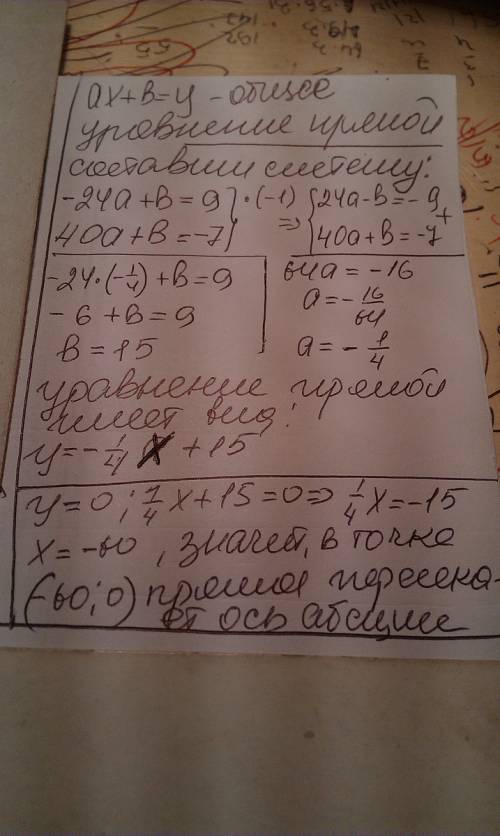 ax+b=y - общее
уравнение прямой
составим систему:
-24a+b=9 } ·(-1) ⇒ { 24a-b=-9 +
40a+b=-7 } { 40a+b=-7
-24·(-1/4)+b=9
-6+b=9
b=15
64a=-16
a=-16/64
a=-1/4
уравнение прямой
имеет вид:
y=-1/4 x +15
y=0; 1/4 x+15=0 ⇒ 1/4 x=-15
x=-60, значет, в точке
(-60;0) прямая пересека-
ет ось абсцисс
55
192